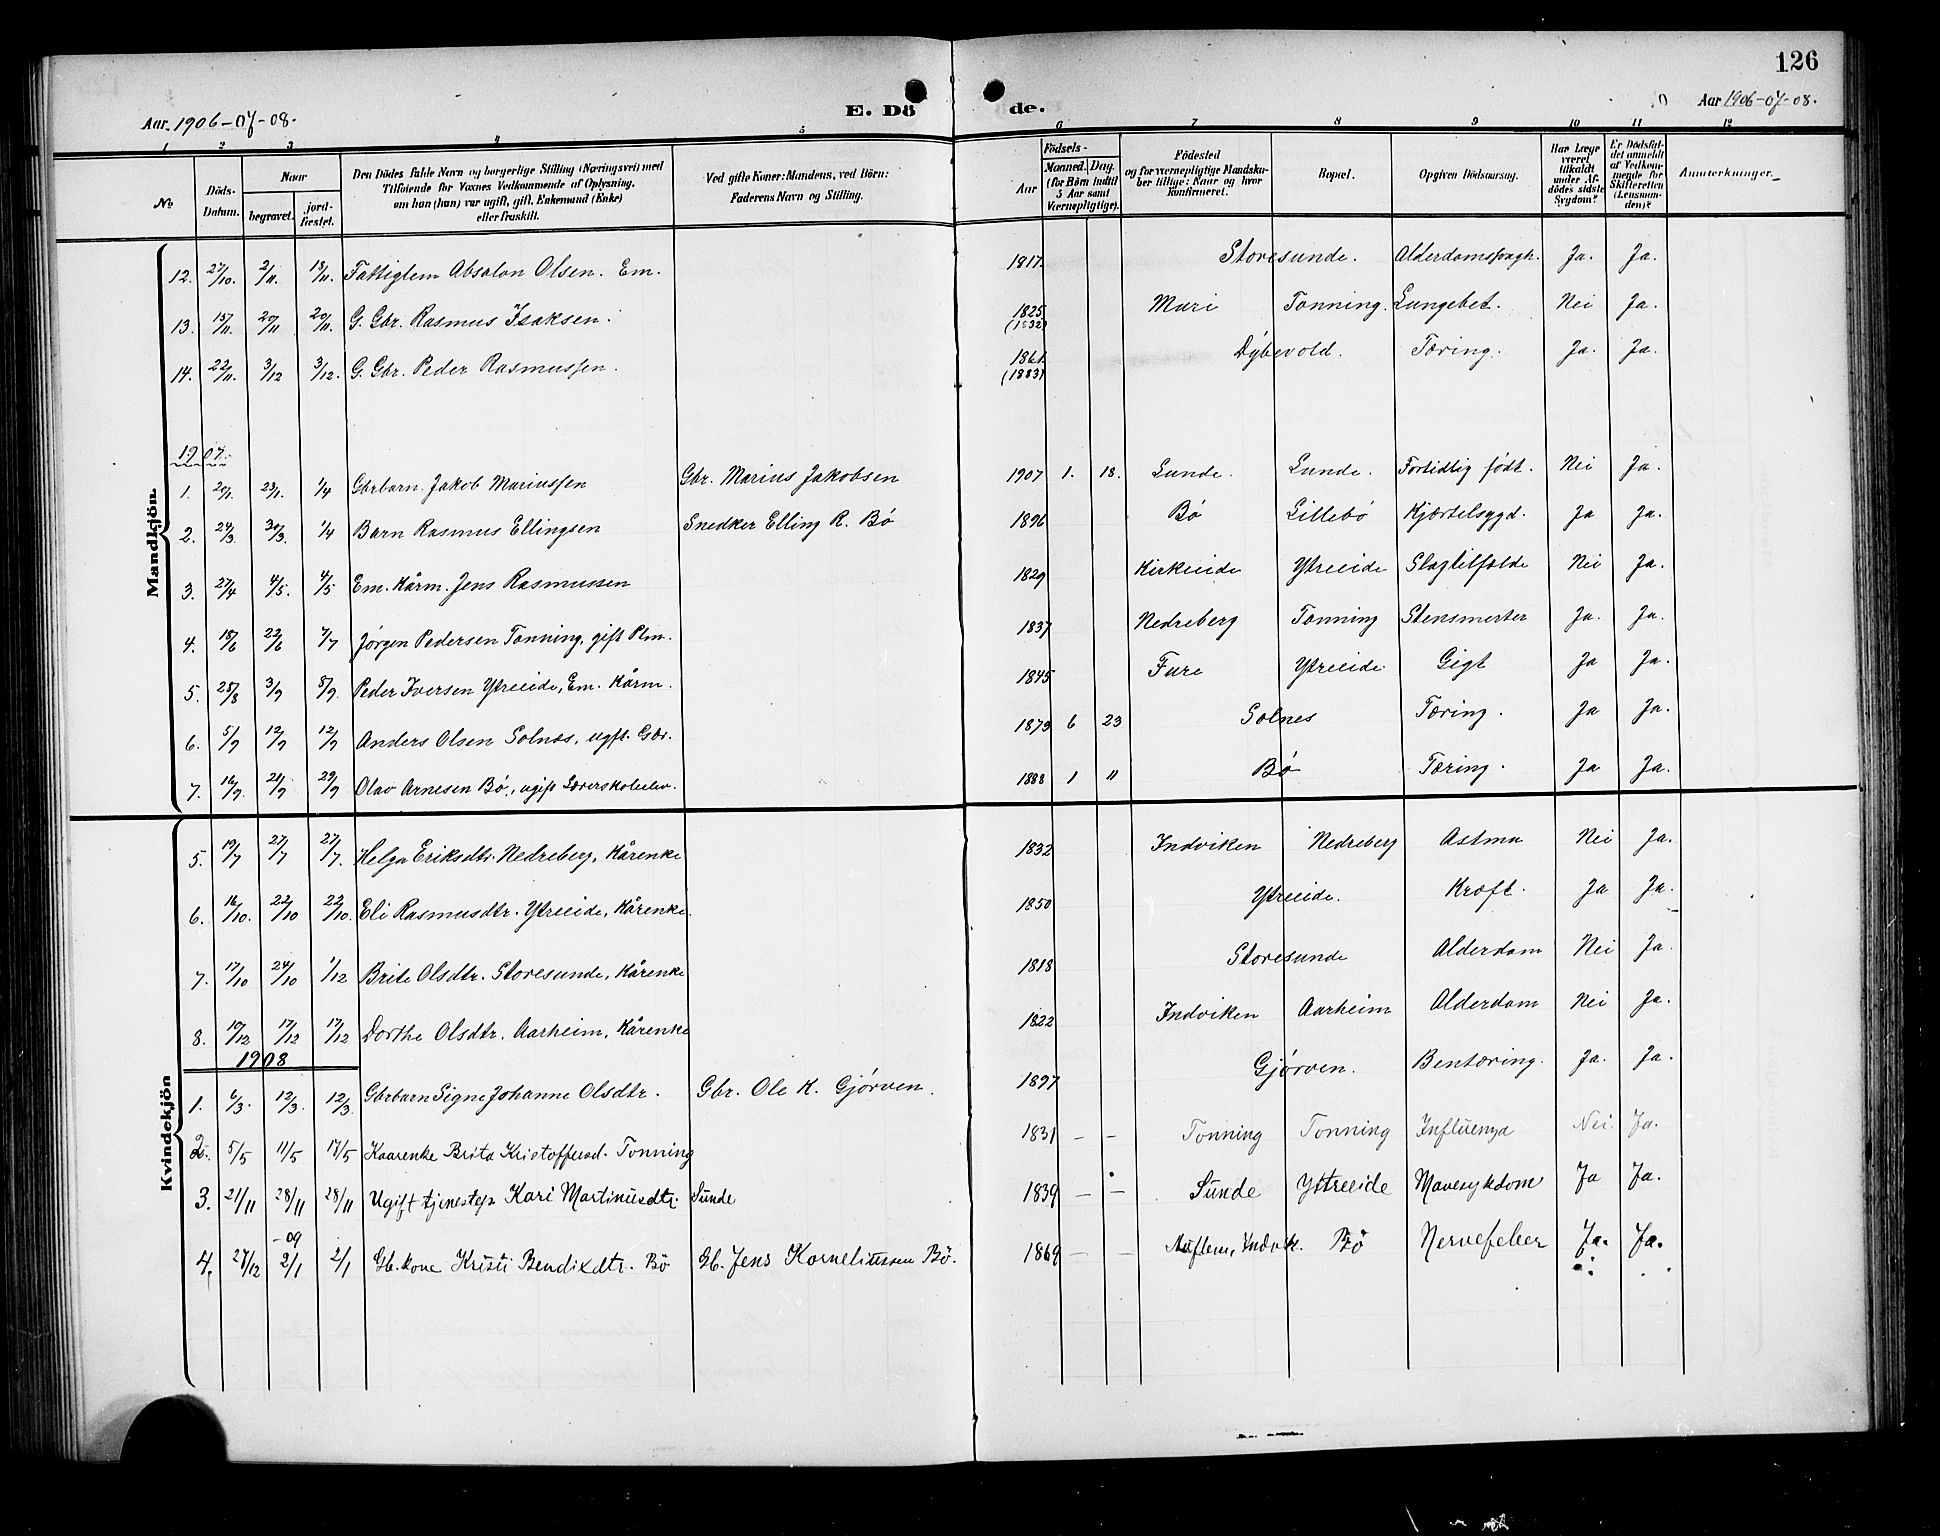 126
Aar 1906-07-08.
E. Dö de.
Aar 1906-07-08.
1 2 3 4 5 6 7 8 9 10 11 12
No
Döds-Datum.
Naar
begravet.
jordfæstet.
Den Dödes fulde Navn og borgerlige Stilling (Næringsvei) med
Tilföiende for Voxnes Vedkommende af Oplysning,
om han (hun) var ugift, gift, Enkemand (Enke)
eller fraskilt.
Ved gifte Koner: Mandens, ved Börn:
Faderens Navn og Stilling.
Födsels-
Aar
Maaned. Dag.
(for Börn indtil
5 Aar samt
Værnepligtige).
Födested
og for værnepligtige Mandskaber tillige: Naar og hvor
konfirmeret.
Bopæl.
Opgiven Dödsaarsag.
Har Læge
været
tilkaldt
under Afdödes sidste
Sygdom?
Er Dödsfaldet anmeldt
af Vedkommende for
Skifteretten
(Lensmanden)?
Anmærkninger.
Mandkjön.
12. 27/10. 2/11. 18/11. Fattiglem Absalon Olsen. Em. 1817. Storesunde. Ja. Ja.
13. 15/11. 20/11 20/11. G. Gbr. Rasmus Isaksen. 1825. (1832) Muri Tonning. Lungebet. Nei Ja.
14. 22/11. 3/12 3/12. G. Gbr. Peder Rasmussen. 1861. (1883) Dybevold. Tæring. Ja. Ja.
1907.
1. 20/1. 23/1. 1/4 Gbrbarn. Jakob Mariussen Gbr. Marius Jakobsen 1907 1. 18. Sunde. Sunde. Fortidlig født. Nei Ja.
2. 24/3. 30/3. 1/4 Barn Rasmus Ellingsen Snedker Elling R. Bø 1896 Bø Lillebø Kjærtelsygd. Ja Ja.
3. 27/4 4/5. 4/5 Em. Kårm. Jens Rasmussen 1829 Kirkeeide Ytreeide Slagtilfælde Nei Ja.
4. 18/6 22/6 7/7 Jørgen Pedersen Tonning, gift Plm. 1837 Nedreberg Tonning Stensmerter Ja. Ja.
5. 28/8 3/9 8/9. Peder Iversen Ytreeide, Em. Kårm. 1845 Fure Ytreeide Gigt Ja Ja.
6. 5/9 12/9 12/9 Anders Olsen Solnæs, ugft. Gbr. 1873 6 23 Solnes Tæring. Ja Ja.
7. 16/9. 21/9 29/9 Olav Arnesen Bø, ugift Lærerskoleelev. 1888 1 11 Bø Tæring. Ja Ja.
Kvindekjön
5. 19/7 27/7 27/7. Helga Eriksdtr. Nedreberg, Kårenke 1832 Indviken Nedreberg Astma Nei Ja.
6. 16/10. 22/10 22/10. Eli Rasmusdtr. Ytreeide, Kårenke. 1850 Ytreeide. Kræft. Ja Ja.
7. 17/10 24/10 1/12 Brite Olsdtr. Storesunde, Kårenke 1818 Storesunde Alderdom Nei Ja.
8. 10/12 17/12 17/12 Dorthe Olsdtr. Aarheim, Kårenke 1822 Indviken Aarheim Alderdom Nei Ja.
1908
1. 6/3. 12/3. 12/3. Gbrbarn Signe Johanne Olsdtr. Gbr. Ole K. Gjørven. 1897 Gjørven. Bentæring. Ja. Ja.
2. 5/5 11/5 17/5 Kaarenke Brita Kristoffersd. Tonning 1831 – – Tonning Tonning Influenza Nei. Ja.
3. 21/11 28/11 28/11 Ugift tjenestep Kari Martinusdtr. Sunde 1839 – – Sunde Ytreeide Mavesykdom Ja Ja.
4. 27/12 -09 2/1 2/1 Gb. kone Kristi Bendixdtr. Bö Gb. Jens Korneliussen Bö. 1869 – – Bö Nervefeber Ja. Ja.